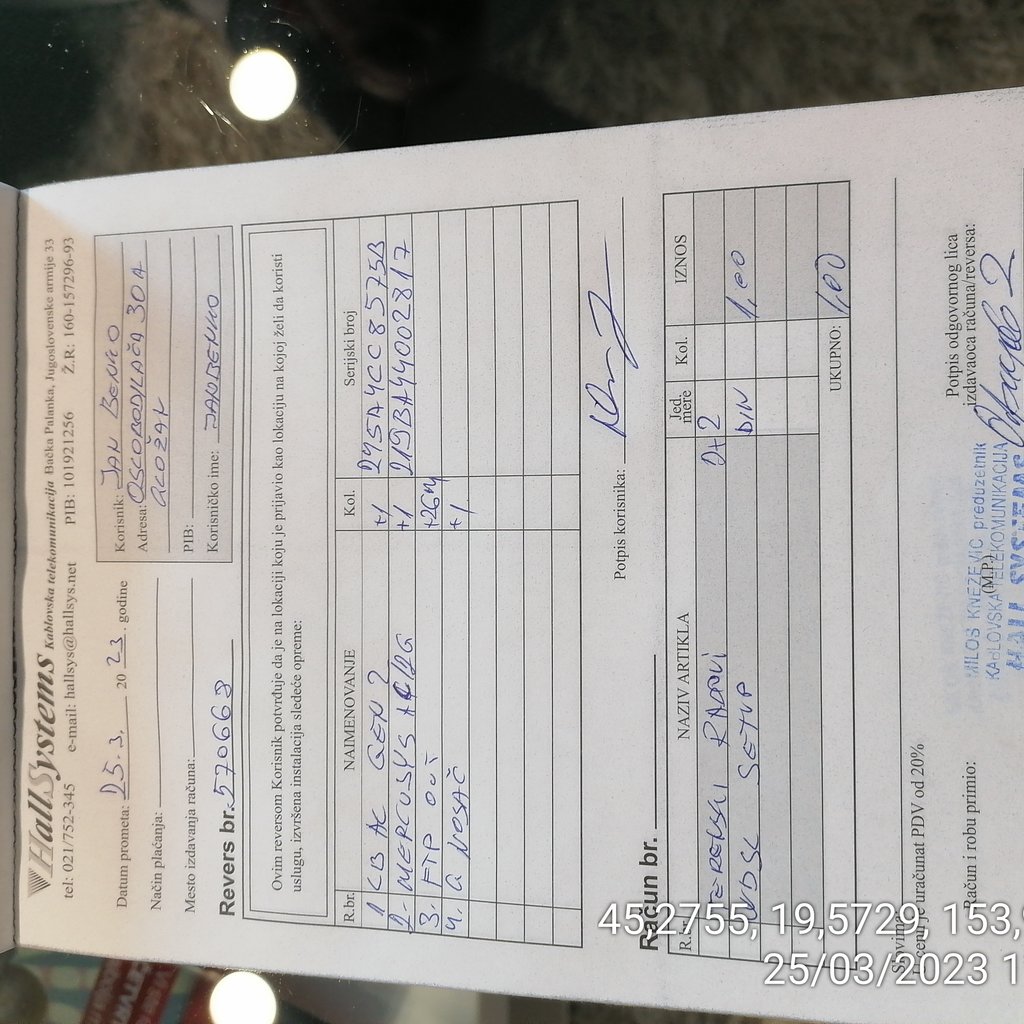 HallSystems Kablovska telekomunikacija Bačka Palanka, Jugoslovenske armije 33
tel: 021/752-345 e-mail: hallsys@hallsys.net PIB: 101921256 Ž.R: 160-157296-93
Datum prometa: 25.3. 2023. godine
Način plaćanja:
Mesto izdavanja računa:
Korisnik: JAN BENKO
Adresa: OSLOBODILAČA 30A
GLOŽAN
PIB:
Korisničko ime: JANBENKO
Revers br. 570668
Ovim reversom Korisnik potvrđuje da je na lokaciji koju je prijavio kao lokaciju na kojoj želi da koristi
uslugu, izvršena instalacija sledeće opreme:
R.br. NAIMENOVANJE Kol. Serijski broj
1 LB AC GEN2 +1 245A4CC8575B
2. MERCUSYS +1 219BA44002817
3. FTP OUT +26M
4. A NOSAČ +1
Potpis korisnika:
Račun br.
R.br. NAZIV ARTIKLA Jed. mere Kol. IZNOS
TERENSKI RADOVI 2+2
WDSL SETUP DIN 1,00
UKUPNO: 1,00
U cenu je uračunat PDV od 20%
Račun i robu primio:
Potpis odgovornog lica
izdavaoca računa/reversa:
(M.P.)
MILOŠ KNEŽEVIĆ preduzetnik
KABLOVSKA TELEKOMUNIKACIJA
HALL SYSTEMS
45,2755, 19,5729, 153,
25/03/2023 1